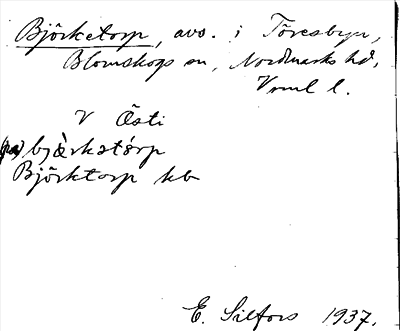 Björketorp, avs. i Töresbyn,
Blomskogs sn, Nordmarks hd,
Vrml l.
V Östi
(på) bjærkatórp
Björktorp kb
E. Silfors 1937.